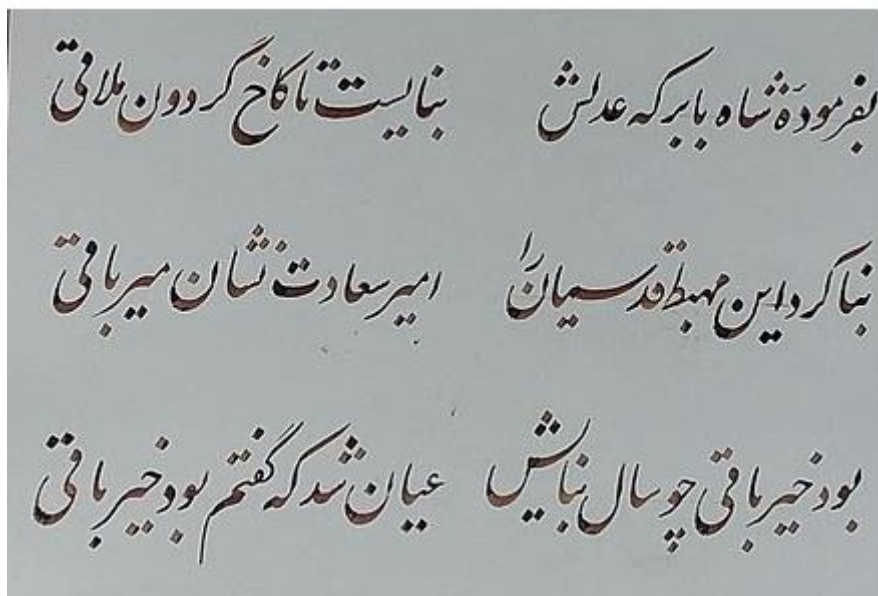 بفرمودۀ شاه بابر که عدلش بنایست تا کاخ گردون ملاقی
بنا کرد این مهبط قدسیان را امیر سعادت نشان میر باقی
بود خیر باقی چو سال بنایش عیان شد که گفتم بود خیر باقی